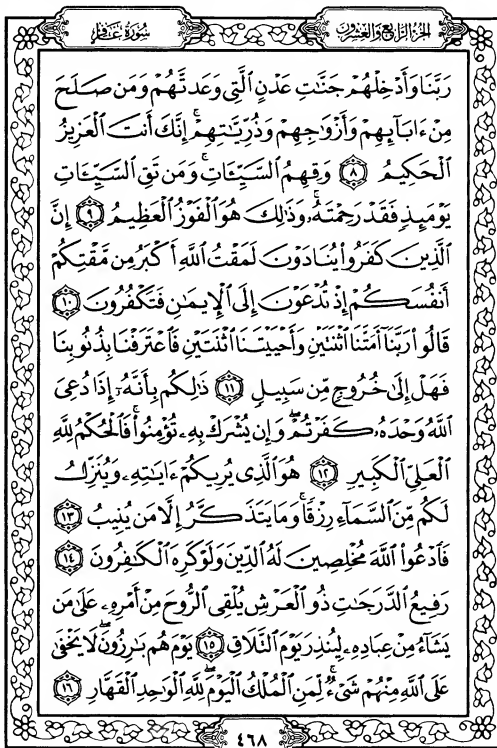 الجزء الرابع والعشرون
سورة غافر
رَبَّنَا وَأَدْخِلْهُمْ جَنَّاتِ عَدْنٍ ٱلَّتِي وَعَدتَّهُمْ وَمَن صَلَحَ
مِنْ ءَابَآئِهِمْ وَأَزْوَٰجِهِمْ وَذُرِّيَّٰتِهِمْ ۚ إِنَّكَ أَنتَ ٱلْعَزِيزُ
ٱلْحَكِيمُ ٨ وَقِهِمُ ٱلسَّيِّـَٔاتِ ۚ وَمَن تَقِ ٱلسَّيِّـَٔاتِ
يَوْمَئِذٍ فَقَدْ رَحِمْتَهُۥ ۚ وَذَٰلِكَ هُوَ ٱلْفَوْزُ ٱلْعَظِيمُ ٩ إِنَّ
ٱلَّذِينَ كَفَرُوا۟ يُنَادَوْنَ لَمَقْتُ ٱللَّهِ أَكْبَرُ مِن مَّقْتِكُمْ
أَنفُسَكُمْ إِذْ تُدْعَوْنَ إِلَى ٱلْإِيمَٰنِ فَتَكْفُرُونَ ١٠
قَالُوا۟ رَبَّنَآ أَمَتَّنَا ٱثْنَتَيْنِ وَأَحْيَيْتَنَا ٱثْنَتَيْنِ فَٱعْتَرَفْنَا بِذُنُوبِنَا
فَهَلْ إِلَىٰ خُرُوجٍ مِّن سَبِيلٍ ١١ ذَٰلِكُم بِأَنَّهُۥٓ إِذَا دُعِيَ
ٱللَّهُ وَحْدَهُۥ كَفَرْتُمْ ۖ وَإِن يُشْرَكْ بِهِۦ تُؤْمِنُوا۟ ۚ فَٱلْحُكْمُ لِلَّهِ
ٱلْعَلِيِّ ٱلْكَبِيرِ ١٢ هُوَ ٱلَّذِي يُرِيكُمْ ءَايَٰتِهِۦ وَيُنَزِّلُ
لَكُم مِّنَ ٱلسَّمَآءِ رِزْقًا ۚ وَمَا يَتَذَكَّرُ إِلَّا مَن يُنِيبُ ١٣
فَٱدْعُوا۟ ٱللَّهَ مُخْلِصِينَ لَهُ ٱلدِّينَ وَلَوْ كَرِهَ ٱلْكَٰفِرُونَ ١٤
رَفِيعُ ٱلدَّرَجَٰتِ ذُو ٱلْعَرْشِ يُلْقِي ٱلرُّوحَ مِنْ أَمْرِهِۦ عَلَىٰ مَن
يَشَآءُ مِنْ عِبَادِهِۦ لِيُنذِرَ يَوْمَ ٱلتَّلَاقِ ١٥ يَوْمَ هُم بَٰرِزُونَ ۖ لَا يَخْفَىٰ
عَلَى ٱللَّهِ مِنْهُمْ شَيْءٌ ۚ لِّمَنِ ٱلْمُلْكُ ٱلْيَوْمَ ۖ لِلَّهِ ٱلْوَٰحِدِ ٱلْقَهَّارِ ١٦
٤٦٨